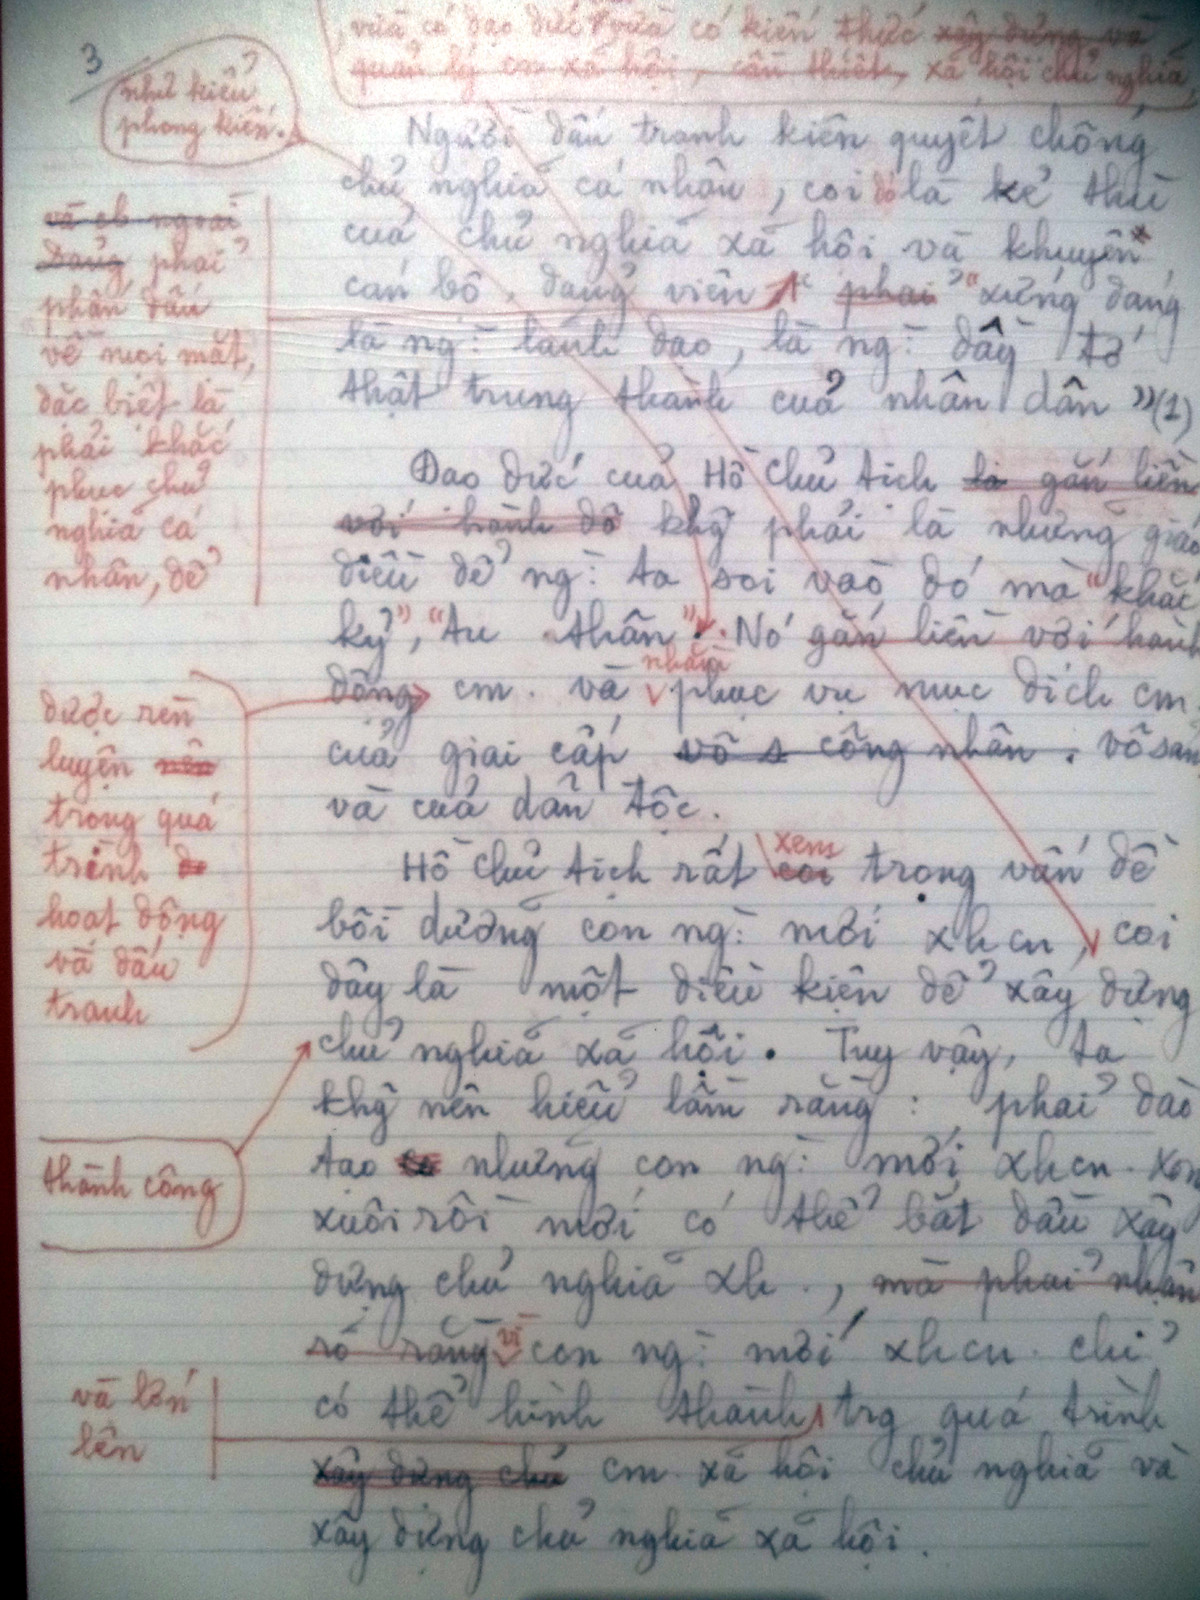 3
, vừa có đạo đức vừa có kiến thức xây dựng và
quản lý xã hội, cần thiết, xã hội chủ nghĩa,
như kiểu
phong kiến.
Người đấu tranh kiên quyết chống
chủ nghĩa cá nhân, coi đó là kẻ thù
của chủ nghĩa xã hội và khuyên
cán bộ, đảng viên phải "xứng đáng
là ng: lãnh đạo, là ng: đầy tớ
thật trung thành của nhân dân" (1)
và cb ngoài
Đảng phải
phấn đấu
về mọi mặt,
đặc biệt là
phải khắc
phục chủ
nghĩa cá
nhân, để
Đạo đức của Hồ Chủ tịch là gắn liền
với hành độ khg phải là những giáo
điều để ng: ta soi vào đó mà "khắc
kỷ", "tu thân". Nó gắn liền với hành
nhằm
động cm. và phục vụ mục đích cm.
của giai cấp vô s công nhân. vô sản
và của dân tộc.
được rèn
luyện nên
trong quá
trình
hoạt động
và đấu
tranh
xem
Hồ Chủ tịch rất coi trọng vấn đề
bồi dưỡng con ng: mới xhcn, coi
đây là một điều kiện để xây dựng
chủ nghĩa xã hội. Tuy vậy, ta
khg nên hiểu lầm rằng: phải đào
tạo những con ng: mới xhcn. xong
xuôi rồi mới có thể bắt đầu xây
dựng chủ nghĩa xh., mà phải nhận
rõ rằng vì con ng: mới xhcn. chỉ
có thể hình thành trg quá trình
xây dựng chủ cm. xã hội chủ nghĩa và
xây dựng chủ nghĩa xã hội.
thành công
và lớn
lên